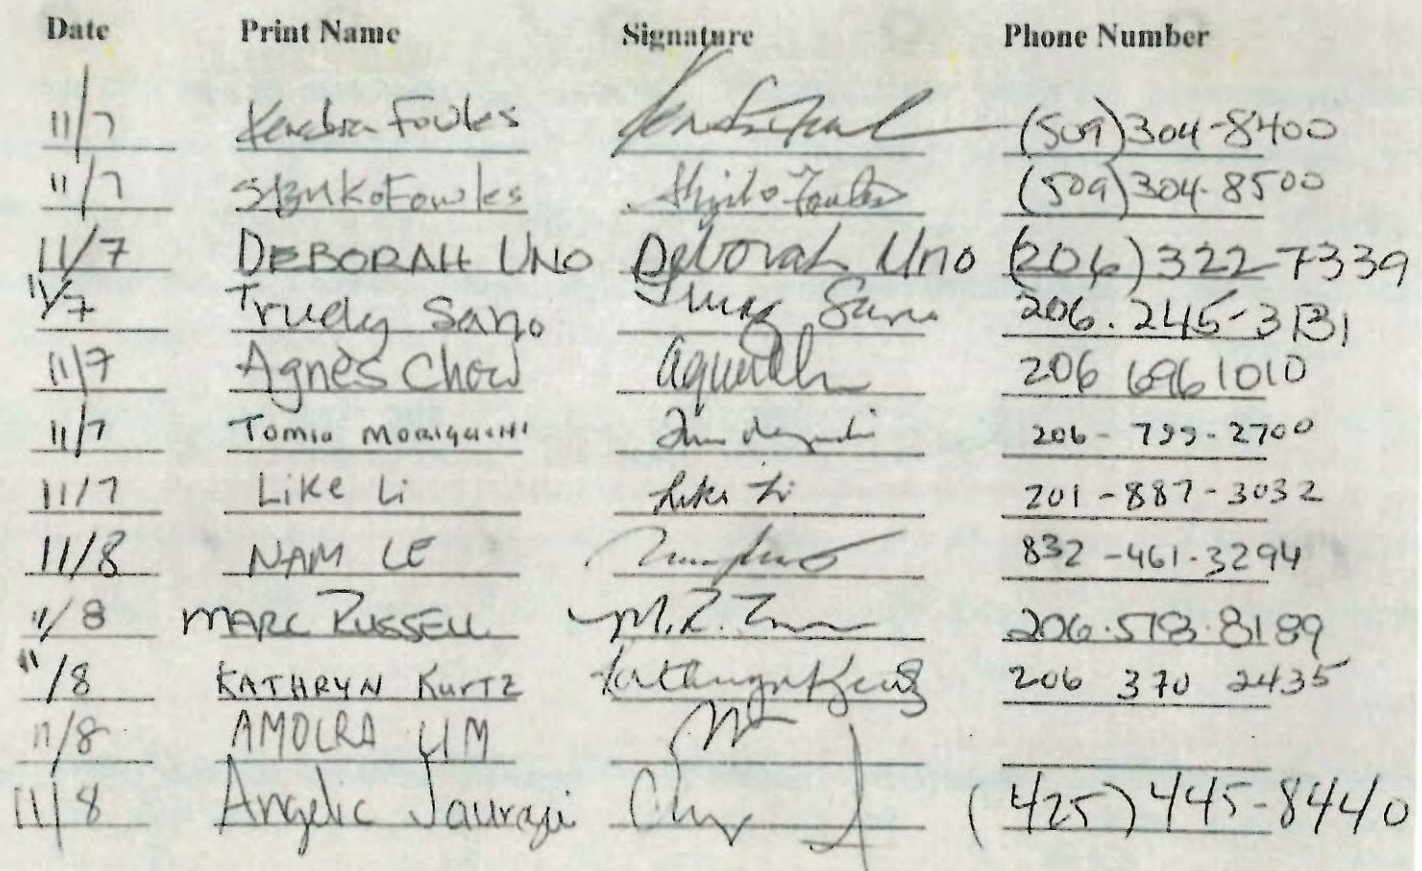 Date Print Name Signature Phone Number
11/7 Kendra Fowles (509)304-8400
11/7 Fowles (509)304-8500
11/7 DEBORAH UNO Deborah Uno (206)322-7339
11/7 Trudy Sano Trudy Sano 206.245-3131
11/7 Agnes Chow 206 696 1010
11/7 Tomio MORIGUCHI 206-799-2700
11/7 Like Li Like Li 201-887-3032
11/8 NAM LE 832-461-3294
11/8 MARC RUSSELL M.R. 206.8189
11/8 KATHRYN KURTZ Kathryn Kurtz 206 370 2435
11/8 AMOLRA LIM
11/8 Angelic (425)445-8440